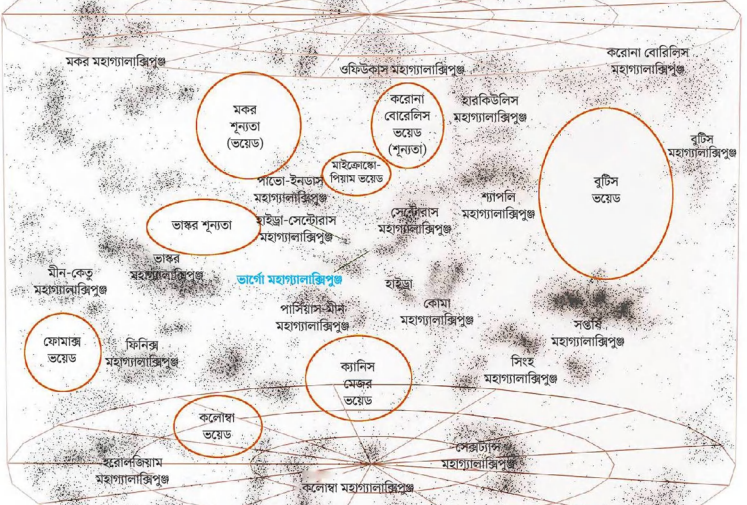 মকর মহাগ্যালাক্সিপুঞ্জ
ওফিউকাস মহাগ্যালাক্সিপুঞ্জ
করোনা বোরিলিস
মহাগ্যালাক্সিপুঞ্জ
মকর
শূন্যতা
(ভয়েড)
করোনা
বোরেলিস
ভয়েড
(শূন্যতা)
হারকিউলিস
মহাগ্যালাক্সিপুঞ্জ
বুটিস
মহাগ্যালাক্সিপুঞ্জ
মাইক্রোস্কো-
পিয়াম ভয়েড
পাভো-ইনডাস
মহাগ্যালাক্সিপুঞ্জ
বুটিস
ভয়েড
শ্যাপলি
মহাগ্যালাক্সিপুঞ্জ
ভাস্কর শূন্যতা
হাইড্রা-সেন্টোরাস
মহাগ্যালাক্সিপুঞ্জ
সেন্টোরাস
মহাগ্যালাক্সিপুঞ্জ
ভাস্কর
মহাগ্যালাক্সিপুঞ্জ
মীন-কেতু
মহাগ্যালাক্সিপুঞ্জ
ভার্গো মহাগ্যালাক্সিপুঞ্জ
হাইড্রা
পার্সিয়াস-মীন
মহাগ্যালাক্সিপুঞ্জ
কোমা
মহাগ্যালাক্সিপুঞ্জ
সপ্তর্ষি
মহাগ্যালাক্সিপুঞ্জ
ফোমাক্স
ভয়েড
ফিনিক্স
মহাগ্যালাক্সিপুঞ্জ
ক্যানিস
মেজর
ভয়েড
সিংহ
মহাগ্যালাক্সিপুঞ্জ
কলোম্বা
ভয়েড
হরোলজিয়াম
মহাগ্যালাক্সিপুঞ্জ
সেক্সট্যান্স
মহাগ্যালাক্সিপুঞ্জ
কলোম্বা মহাগ্যালাক্সিপুঞ্জ